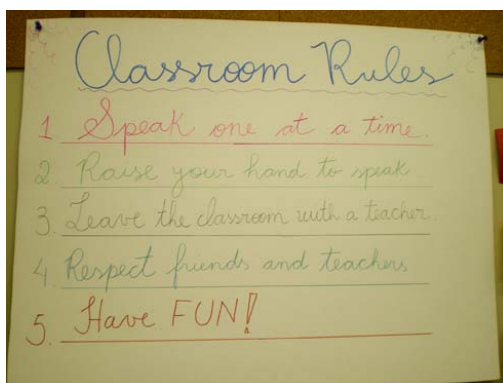 Classroom Rules
1 Speak one at a time.
2 Raise your hand to speak
3. Leave the classroom with a teacher.
4 Respect friends and teachers
5. Have FUN!